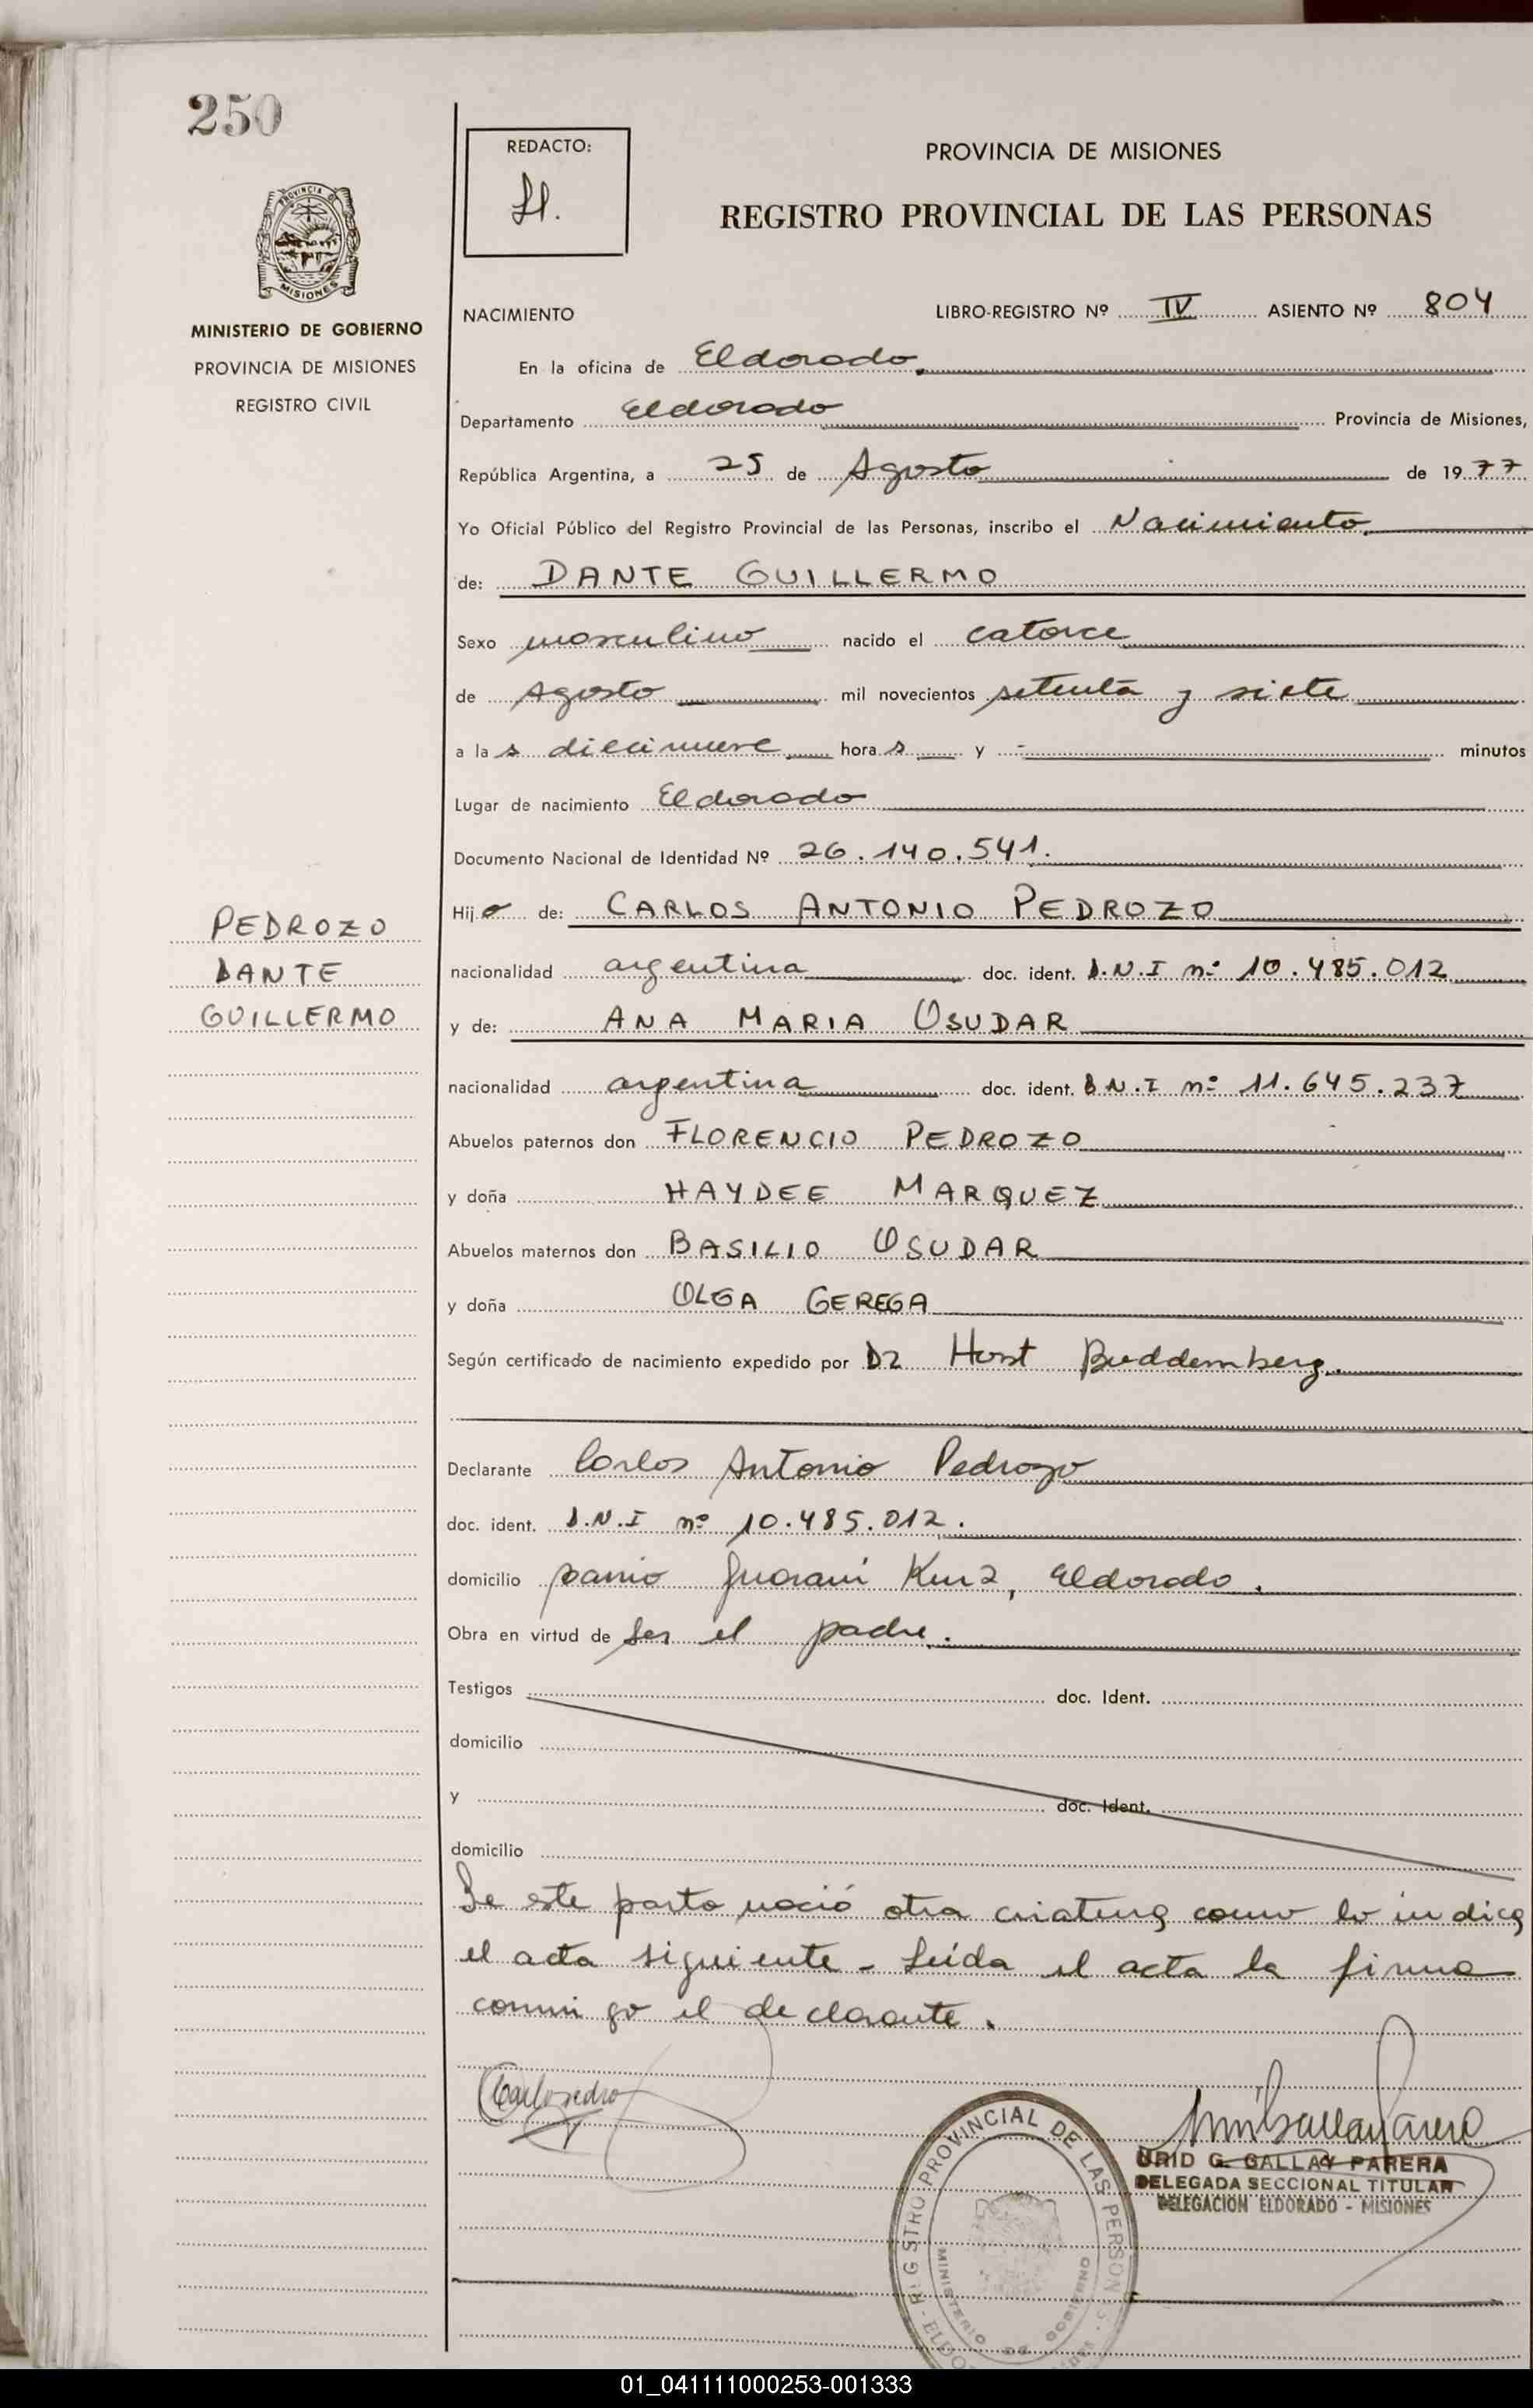 250
REDACTO:
PROVINCIA DE MISIONES
REGISTRO PROVINCIAL DE LAS PERSONAS
PROVINCIA DE
MISIONES
MINISTERIO DE GOBIERNO
PROVINCIA DE MISIONES
REGISTRO CIVIL
NACIMIENTO LIBRO-REGISTRO Nº IV ASIENTO Nº 804
En la oficina de Eldorado
Departamento Eldorado Provincia de Misiones,
República Argentina, a 25 de Agosto de 1977
Yo Oficial Público del Registro Provincial de las Personas, inscribo el Nacimiento
de: DANTE GUILLERMO
Sexo masculino nacido el catorce
de Agosto mil novecientos setenta y siete
a las diecinueve horas y - minutos
Lugar de nacimiento Eldorado
Documento Nacional de Identidad Nº 26.140.541.
Hijo de: CARLOS ANTONIO PEDROZO
PEDROZO
DANTE
GUILLERMO
nacionalidad argentina doc. ident. D.N.I nº 10.485.012
y de: ANA MARIA OSUDAR
nacionalidad argentina doc. ident. D.N.I nº 11.645.237
Abuelos paternos don FLORENCIO PEDROZO
y doña HAYDEE MARQUEZ
Abuelos maternos don BASILIO OSUDAR
y doña OLGA GEREGA
Según certificado de nacimiento expedido por Dr Horst Buddemberg.
Declarante Carlos Antonio Pedrozo
doc. ident. D.N.I nº 10.485.012.
domicilio barrio Guarani Km 2, Eldorado.
Obra en virtud de ser el padre.
Testigos doc. Ident.
domicilio
y doc. Ident.
domicilio
De este parto nació otra criatura como lo indica
el acta siguiente - Leída el acta la firma
conmigo el declarante.
URID G. GALLAY PARERA
DELEGADA SECCIONAL TITULAR
DELEGACION ELDORADO - MISIONES
PROVINCIAL DE LAS
MINISTERIO DE GOBIERNO
01_041111000253-001333